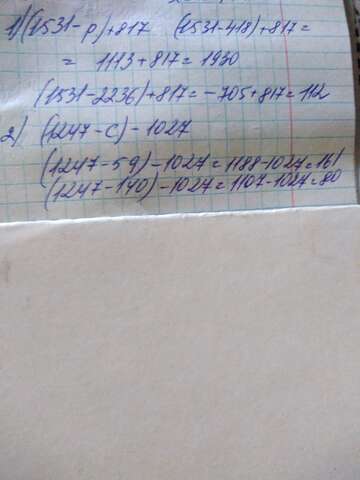 1) (1531-p)+817 (1531-418)+817=
= 1113+817=1930
(1531-2236)+817=-705+817=112
2) (1247-c)-1027
(1247-59)-1027=1188-1027=161
(1247-140)-1027=1107-1027=80